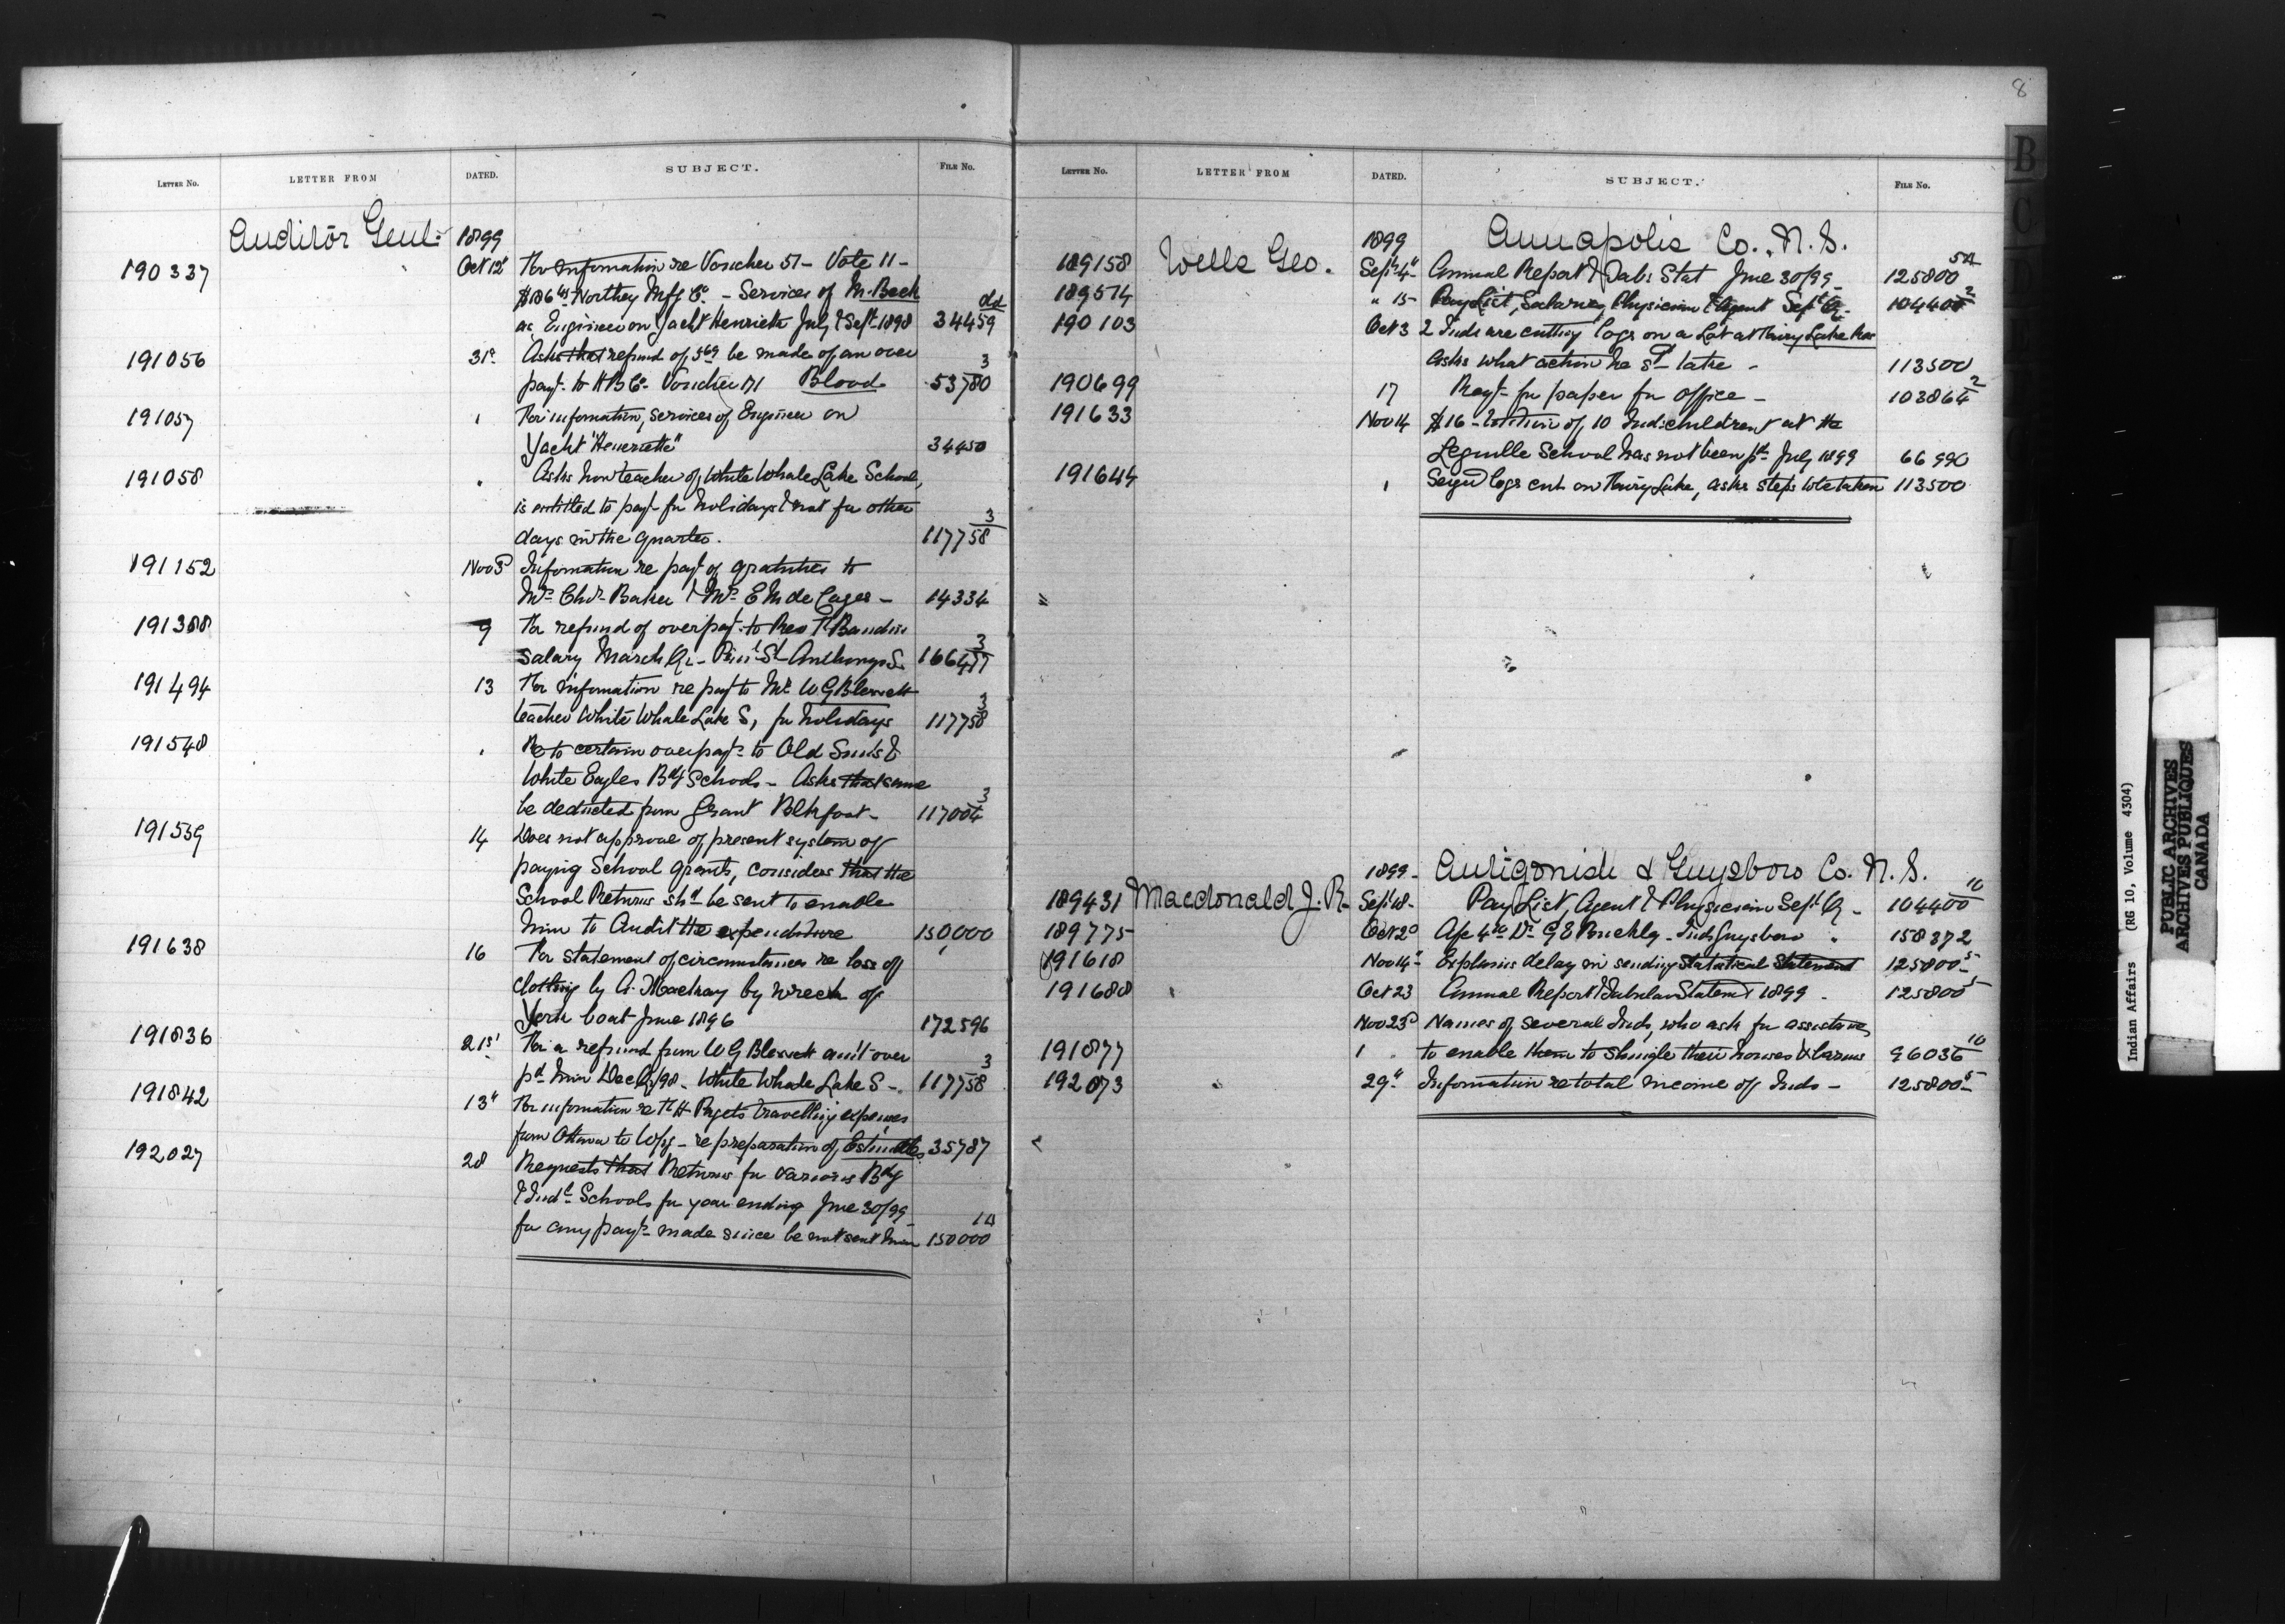 8
LETTER No. LETTER FROM DATED. SUBJECT. FILE No.
Auditor Genl. 1899
190337 Oct 12 For information re Voucher 51 - Vote 11 -
$186 Northey Mfg Co. - Services of M. Beck
as Engineer on Yacht Henrietta July & Sept 1898 34459
191056 31 Asks that refund of be made of an over
payt. to H B Co. Voucher 171 Blood 53780 3
191057 " For information, services of Engineer on
Yacht "Henrietta" 34450
191058 " Asks how teacher of White Whale Lake School,
is entitled to payt for holidays & not for other
days in the quarter. 117758 3
191152 Nov 3 Information re payt of gratuities to
Mrs. Chas. Baker & Mrs. E M de Cazes - 14334
191388 9 For refund of overpayt. to Rev
Salary March Qr - St. Anthonys S. 3
191494 13 For information re payt to Mr W G Blewett
teacher White Whale Lake S, for holidays 117758 3
191548 " Re to certain overpayts to Old Suns &
White Eagles Bdg Schools - Asks that same
be deducted from Grant Blkfoot - 117004 3
191559 14 Does not approve of present system of
paying School grants, considers that the
School Returns shd be sent to enable
him to Audit the expenditure 150,000
191638 16 For statement of circumstances re loss of
clothing by A. Mackay by wreck of
York boat June 1896 172596
191836 21st For a refund from W G Blewett amt over
pd him Dec Qr/98 - White Whale Lake S - 117758 3
191842 13" For information re Pagets travelling expenses
from Ottawa to Wpg - re preparation of Estimates 35787
192027 28 Requests that Returns for various Bdg
& Indl. Schools for year ending June 30/99
for any payts made since be not sent him 150000
LETTER No. LETTER FROM DATED. SUBJECT. FILE No.
1899 Annapolis Co., N. S.
189158 Wells Geo. Sept. 4" Annual Report & Tab: Stat June 30/99 - 125800
189574 " 15 - Pay List, Salaries, Physician & Agent Sept Qr - 104400 2
190103 Oct 3 2 Inds are cutting logs on a Lot at Fairy Lake
Asks what action he sd take - 113500
190699 17 Reqt - for paper for office - 103864 2
191633 Nov 14 $16 - tuition of 10 Ind: children at the
Lequille School has not been pd. July 1899 66990
191644 " logs cut on Fairy Lake, asks steps to be taken 113500
1899 - Antigonish & Guysboro Co. N. S.
189431 Macdonald J. R. Sept 18 - Pay List, Agent & Physician Sept Qr - 104400 10
189775 Oct 2 Dr. G E Buckley - Inds Guysboro " 158372
191618 Nov 14" - Explains delay in sending Statistical Statement 125800 5
191688 " Oct 23 Annual Report & Tabular Statemt 1899 - 125800 5
Nov 23 Names of several Inds, who ask for assistance
191877 " to enable them to shingle their houses & barns 96036 10
192073 " 29" Information re total income of Inds - 125800 5
B
C
Indian Affairs (RG 10, Volume 4304)
PUBLIC ARCHIVES
ARCHIVES PUBLIQUES
CANADA